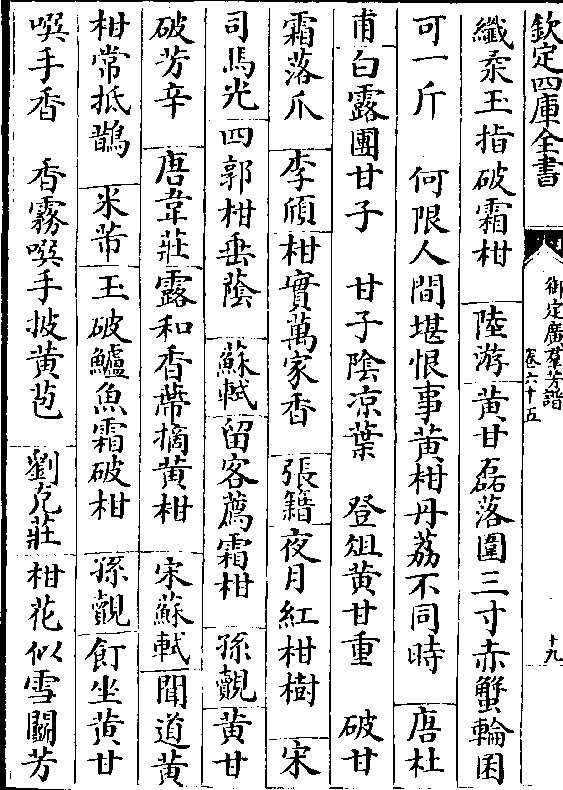 欽定四庫全書
御定廣群芳譜
卷六十五
十九
纖柔玉指破霜柑 陸游黄甘磊落圍三寸赤蟹輪囷
可一斤 何限人間堪恨事黄柑丹荔不同時 唐杜
甫白露團甘子 甘子陰凉葉 登俎黄甘重 破甘
霜落爪 李頎柑實萬家香 張籍夜月紅柑樹 宋
司馬光四郭柑垂蔭 蘇軾留客薦霜柑 孫覿黄甘
破芳辛 唐韋莊露和香蒂摘黄柑 宋蘇軾聞道黄
柑常抵鵲 米芾玉破鱸魚霜破柑 孫覿飣坐黄甘
噀手香 香霧噀手披黄苞 劉克莊柑花似雪鬭芳